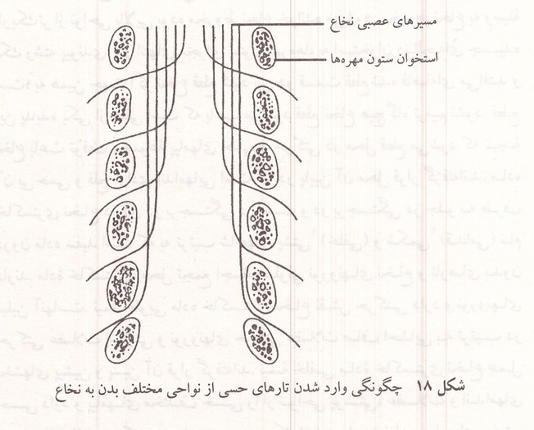 مسیرهای عصبی نخاع
استخوان ستون مهره‌ها
شکل ۱۸ چگونگی وارد شدن تارهای حسی از نواحی مختلف بدن به نخاع